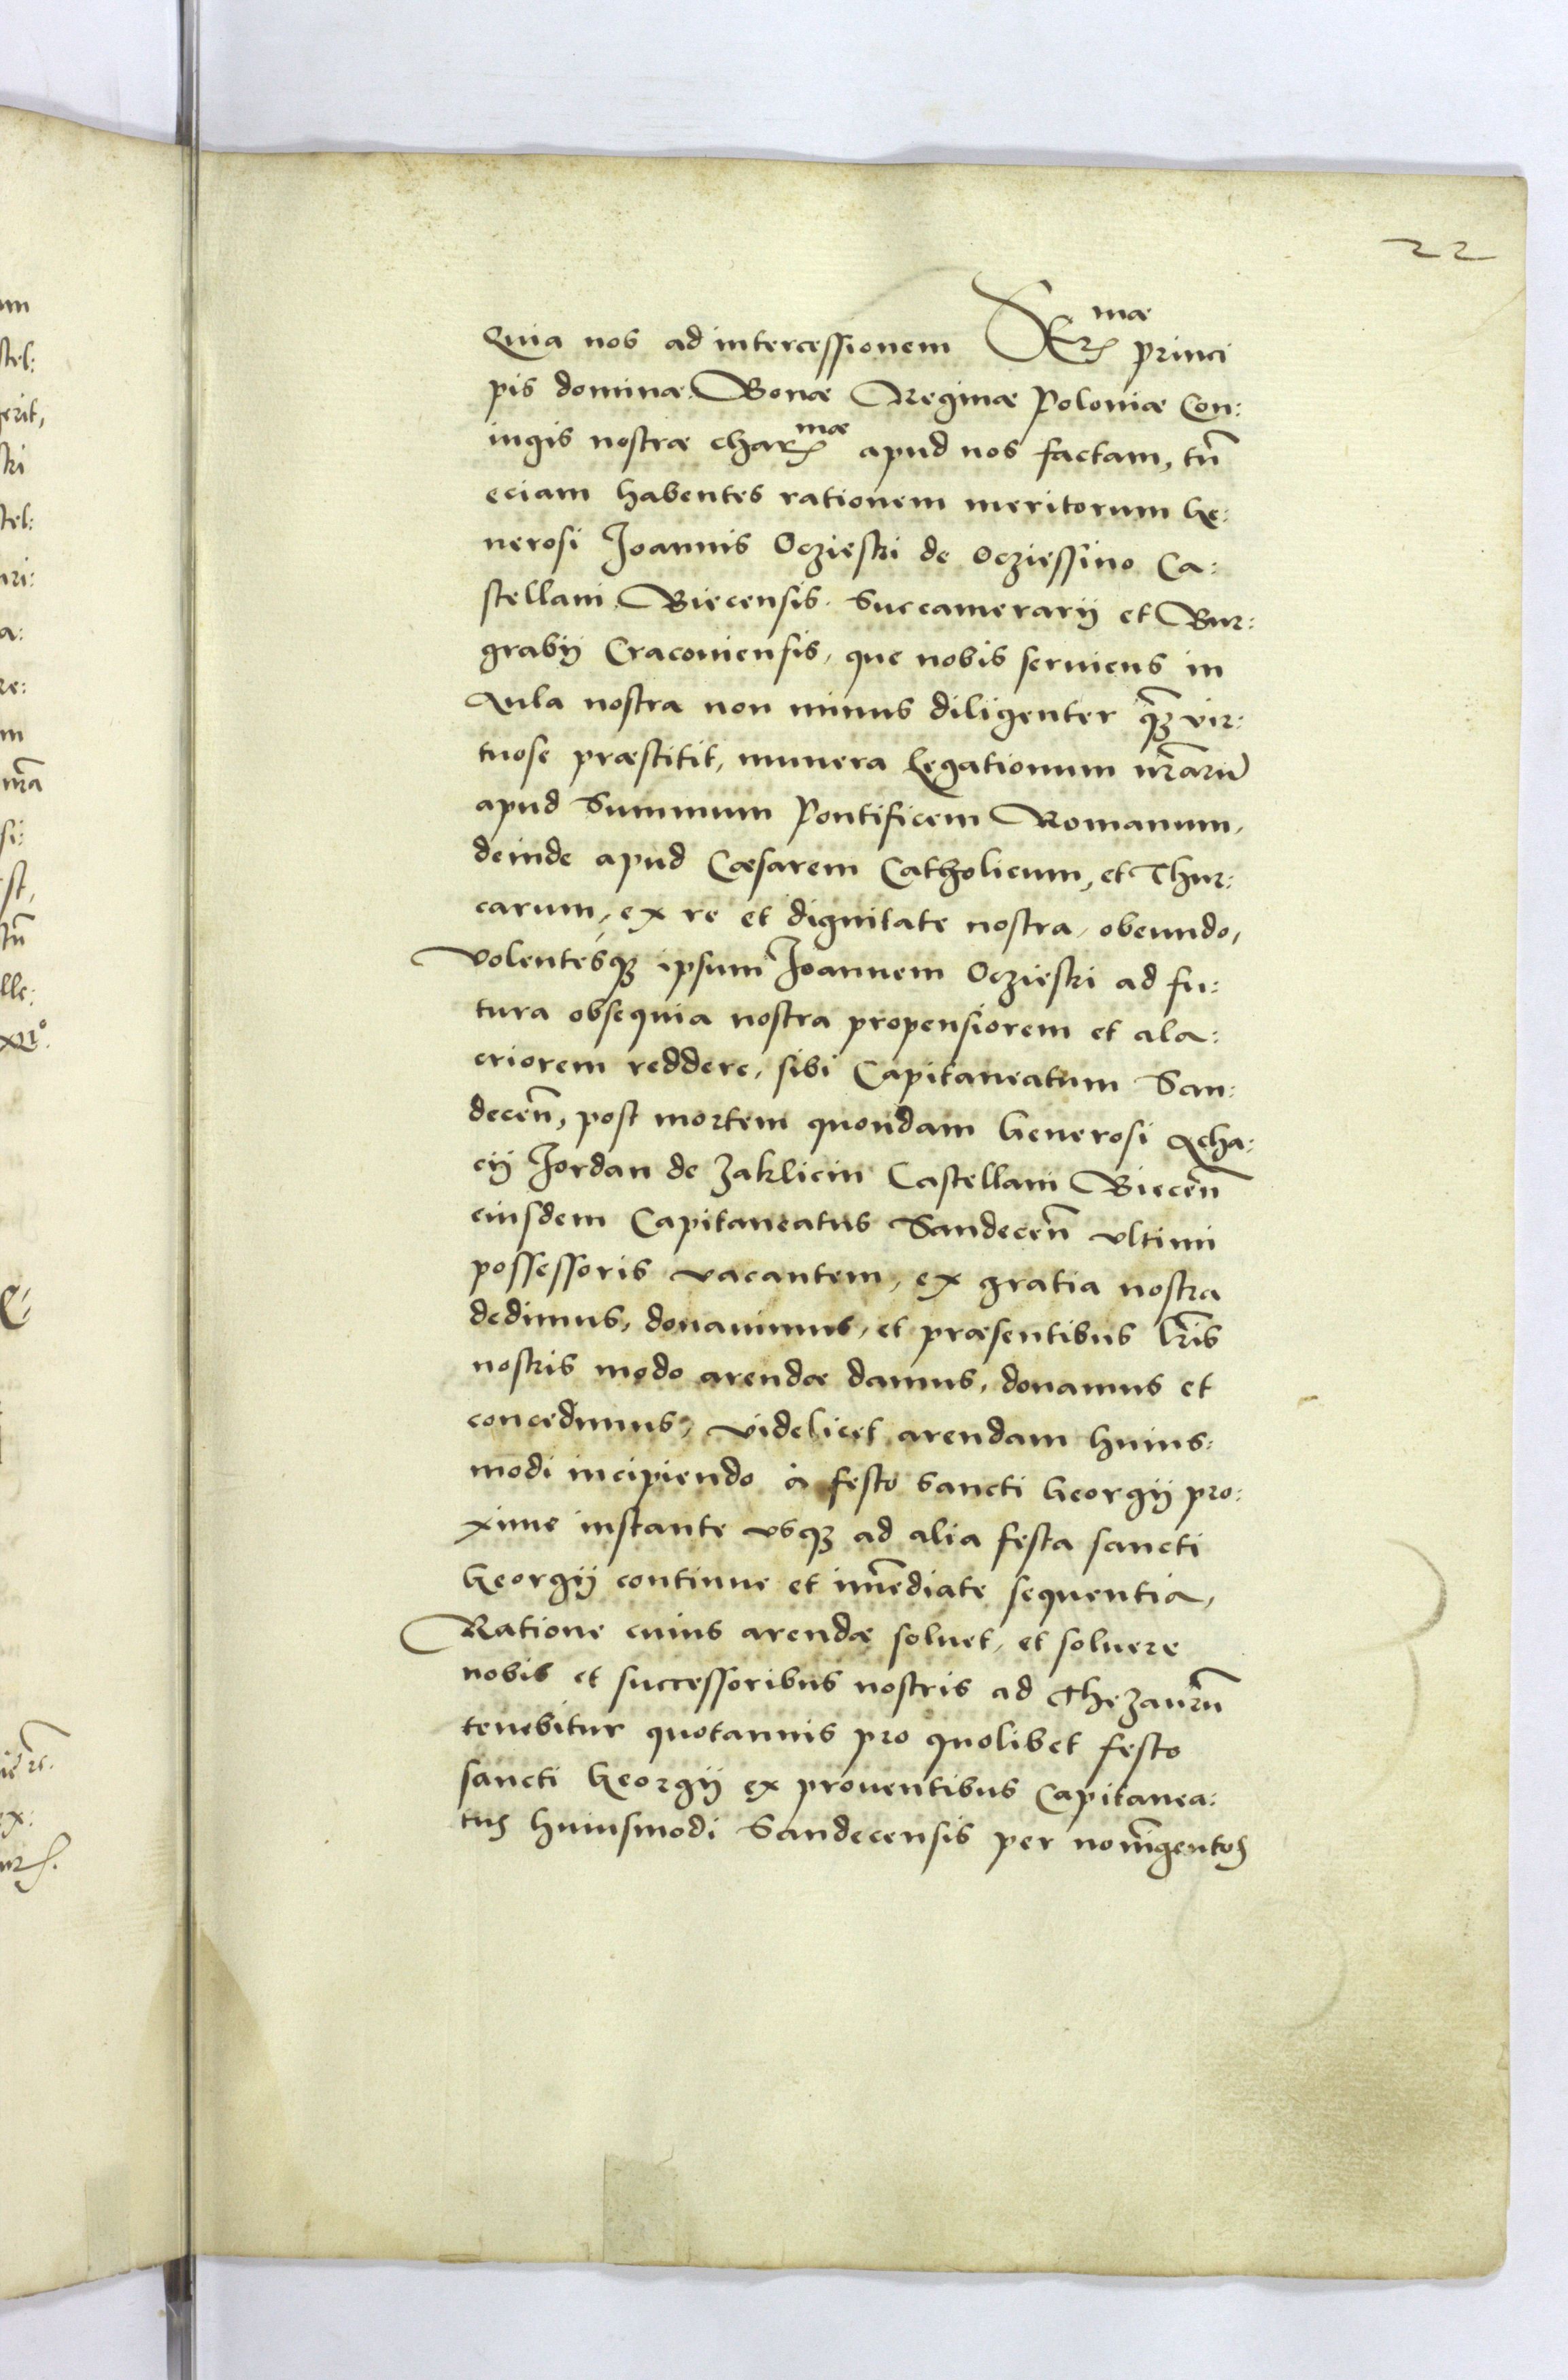 22
Quia nos ad intercessionem Ser mae princi
pis dominæ Bonæ Reginæ Poloniæ Con:
iugis nostræ char mae apud nos factam, tn̄
eciam habentes rationem meritorum Ge:
nerosi Joannis Oczieski de Ocziessino Ca:
stellani Biecensis Succamerarij et Bur:
grabij Cracoviensis, que nobis serviens in
Aula nostra non minus diligenter qꝫ vir:
tuose præstitit, munera legationum nr̄arū
apud Summum Pontificem Romanum,
deinde apud Cæsarem Catholicum, et Thur:
carum, ex re et dignitate nostra, obeundo,
Volentésqꝫ ipsum Joannem Oczieski ad fu:
tura obsequia nostra propensiorem et ala:
criorem reddere, sibi Capitaneatum San:
decen̄, post mortem quondam Generosi Acha:
cij Jordan de Zaklicin Castellani Biecen̄
eiusdem Capitaneatus Sandecen̄ ultimi
possessoris vacantem, ex gratia nostra
dedimus, donavimus, et præsentibus lr̄is
nostris modo arendæ damus, donamus et
concedimus, videlicet arendam huius:
modi incipiendo à festo Sancti Georgij pro:
xime instante usqꝫ ad alia festa sancti
Georgij continue et im̄ediate sequentia,
Ratione cuius arendæ solvet, et solvere
nobis et successoribus nostris ad Thezaurū
tenebitur quotannis pro quolibet festo
sancti Georgij ex proventibus Capitanea:
tus huiusmodi Sandecensis per nomīgentos